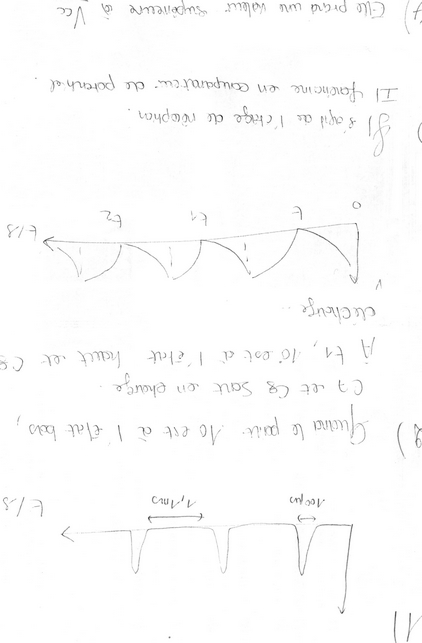 1)
100µs
1,1ms
t/s
2) Quand le point 10 est à l'état bas,
C7 et C8 sont en charge.
À t1, 10 est à l'état haut et C8
décharge..
V
0
t
t1
t2
t/s
Il s'agit de l'étage de réception.
Il fonctionne en comparateur de
4) Elle prend une valeur supérieure à Vcc